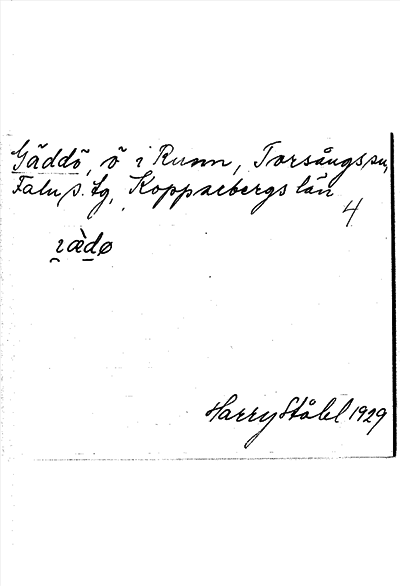 Gäddö, ö i Runn, Torsångs sn,
Falu s. tg, Kopparbergs län
4
Harry Ståhl 1929